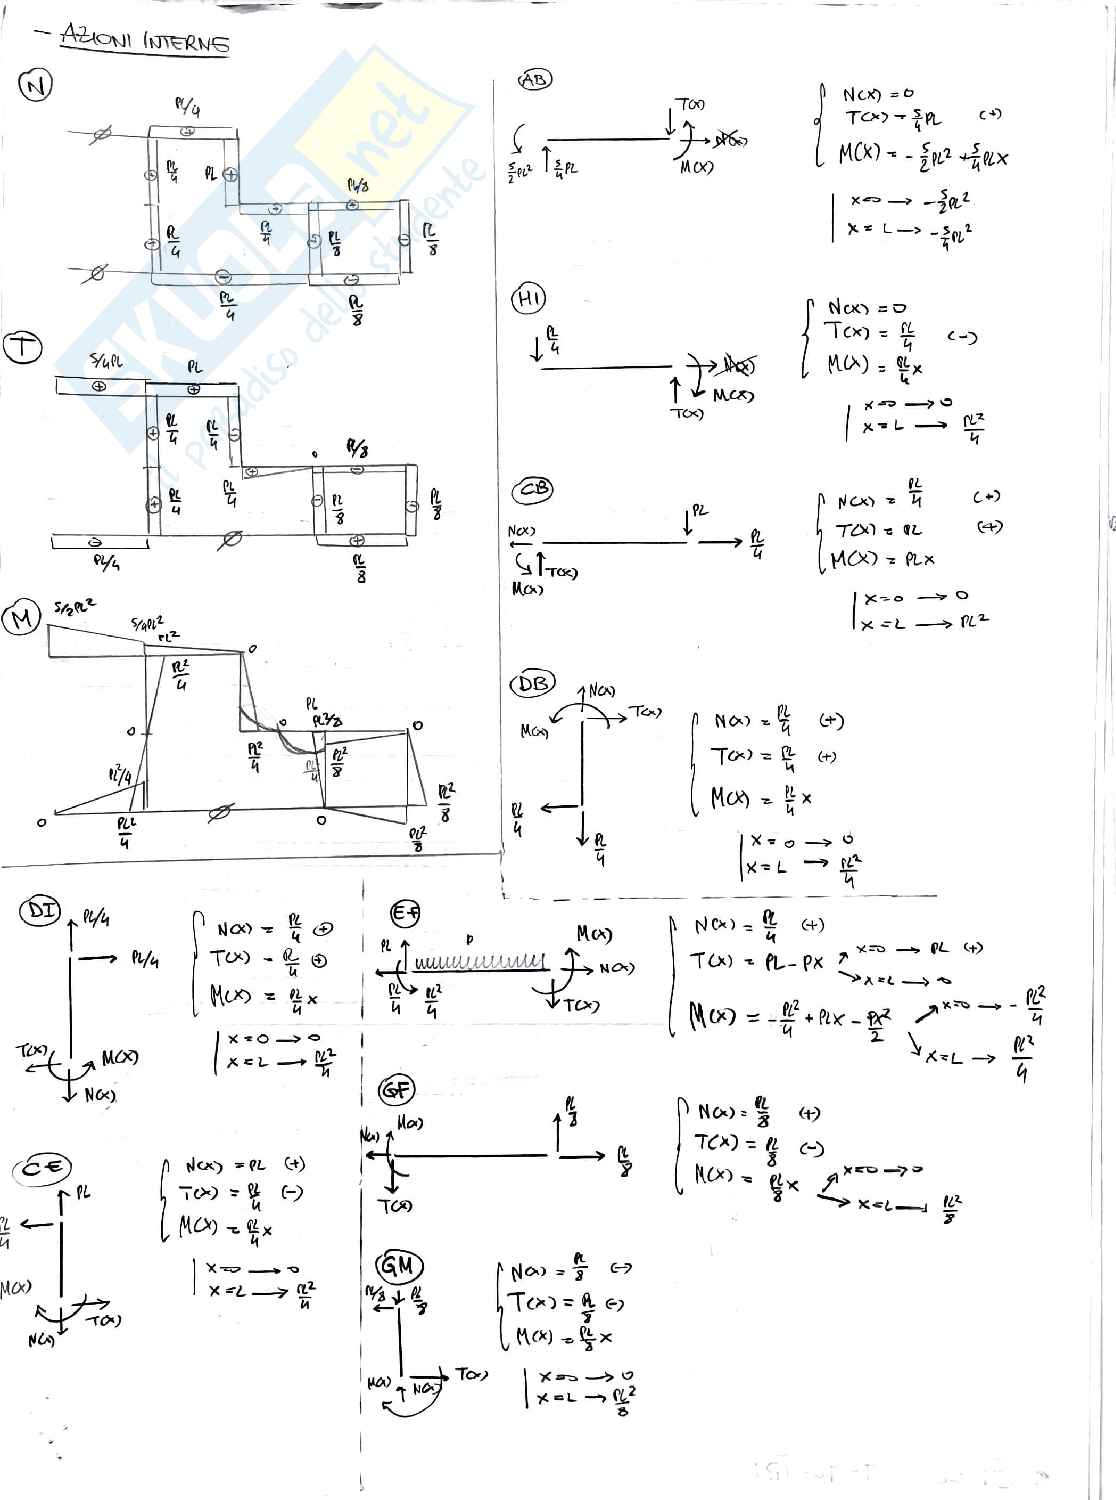 - AZIONI INTERNE
N
PL/4
⊕
PL/4 PL ⊕
PL/8
PL/4
PL/4
PL/8
PL/8
PL/4
PL/8
T
5/4PL
PL
PL/4
PL/4
PL/4
0
PL/8
PL/4
PL/8
PL/8
PL/4
PL/8
M
5/2PL²
5/4PL²
PL²
0
PL²/4
0
PL²/4
0
0
PL²/8
PL²/8
PL²/4
0
PL²/4
0
PL²/8
PL²/8
AB
T(x)
N(x)
M(x)
5/2PL² 5/4PL
N(x) = 0
T(x) = 5/4PL (+)
M(x) = - 5/2PL² + 5/4PLx
x=0 → -5/2PL²
x=L → -5/4PL²
HI
PL/4
N(x)
M(x)
T(x)
N(x) = 0
T(x) = PL/4 (-)
M(x) = PL/4x
x=0 → 0
x=L → PL²/4
CB
PL
N(x)
PL/4
T(x)
M(x)
N(x) = PL/4 (+)
T(x) = PL (+)
M(x) = PLx
x=0 → 0
x=L → PL²
DB
N(x)
M(x) T(x)
PL/4
PL/4
N(x) = PL/4 (+)
T(x) = PL/4 (+)
M(x) = PL/4 x
x=0 → 0
x=L → PL²/4
DI
PL/4
PL/4
T(x) M(x)
N(x)
N(x) = PL/4 ⊕
T(x) = PL/4 ⊕
M(x) = PL/4x
x=0 → 0
x=L → PL²/4
EF
PL P M(x)
N(x)
PL/4 PL²/4 T(x)
N(x) = PL/4 (+)
T(x) = PL - Px x=0 → PL (+)
x=L → 0
M(x) = -PL²/4 + PLx - Px²/2 x=0 → -PL²/4
x=L → PL²/4
CE
PL
PL/4
M(x)
T(x)
N(x)
N(x) = PL (+)
T(x) = PL/4 (-)
M(x) = PL/4x
x=0 → 0
x=L → PL²/4
GF
N(x) M(x) PL/8
PL/8
T(x)
N(x) = PL/8 (+)
T(x) = PL/8 (-)
M(x) = PL/8x x=0 → 0
x=L → PL²/8
GM
PL/8 PL/8
T(x)
M(x) N(x)
N(x) = PL/8 (-)
T(x) = PL/8 (-)
M(x) = PL/8x
x=0 → 0
x=L → PL²/8
SKUOLA.net
il paradiso dello studente